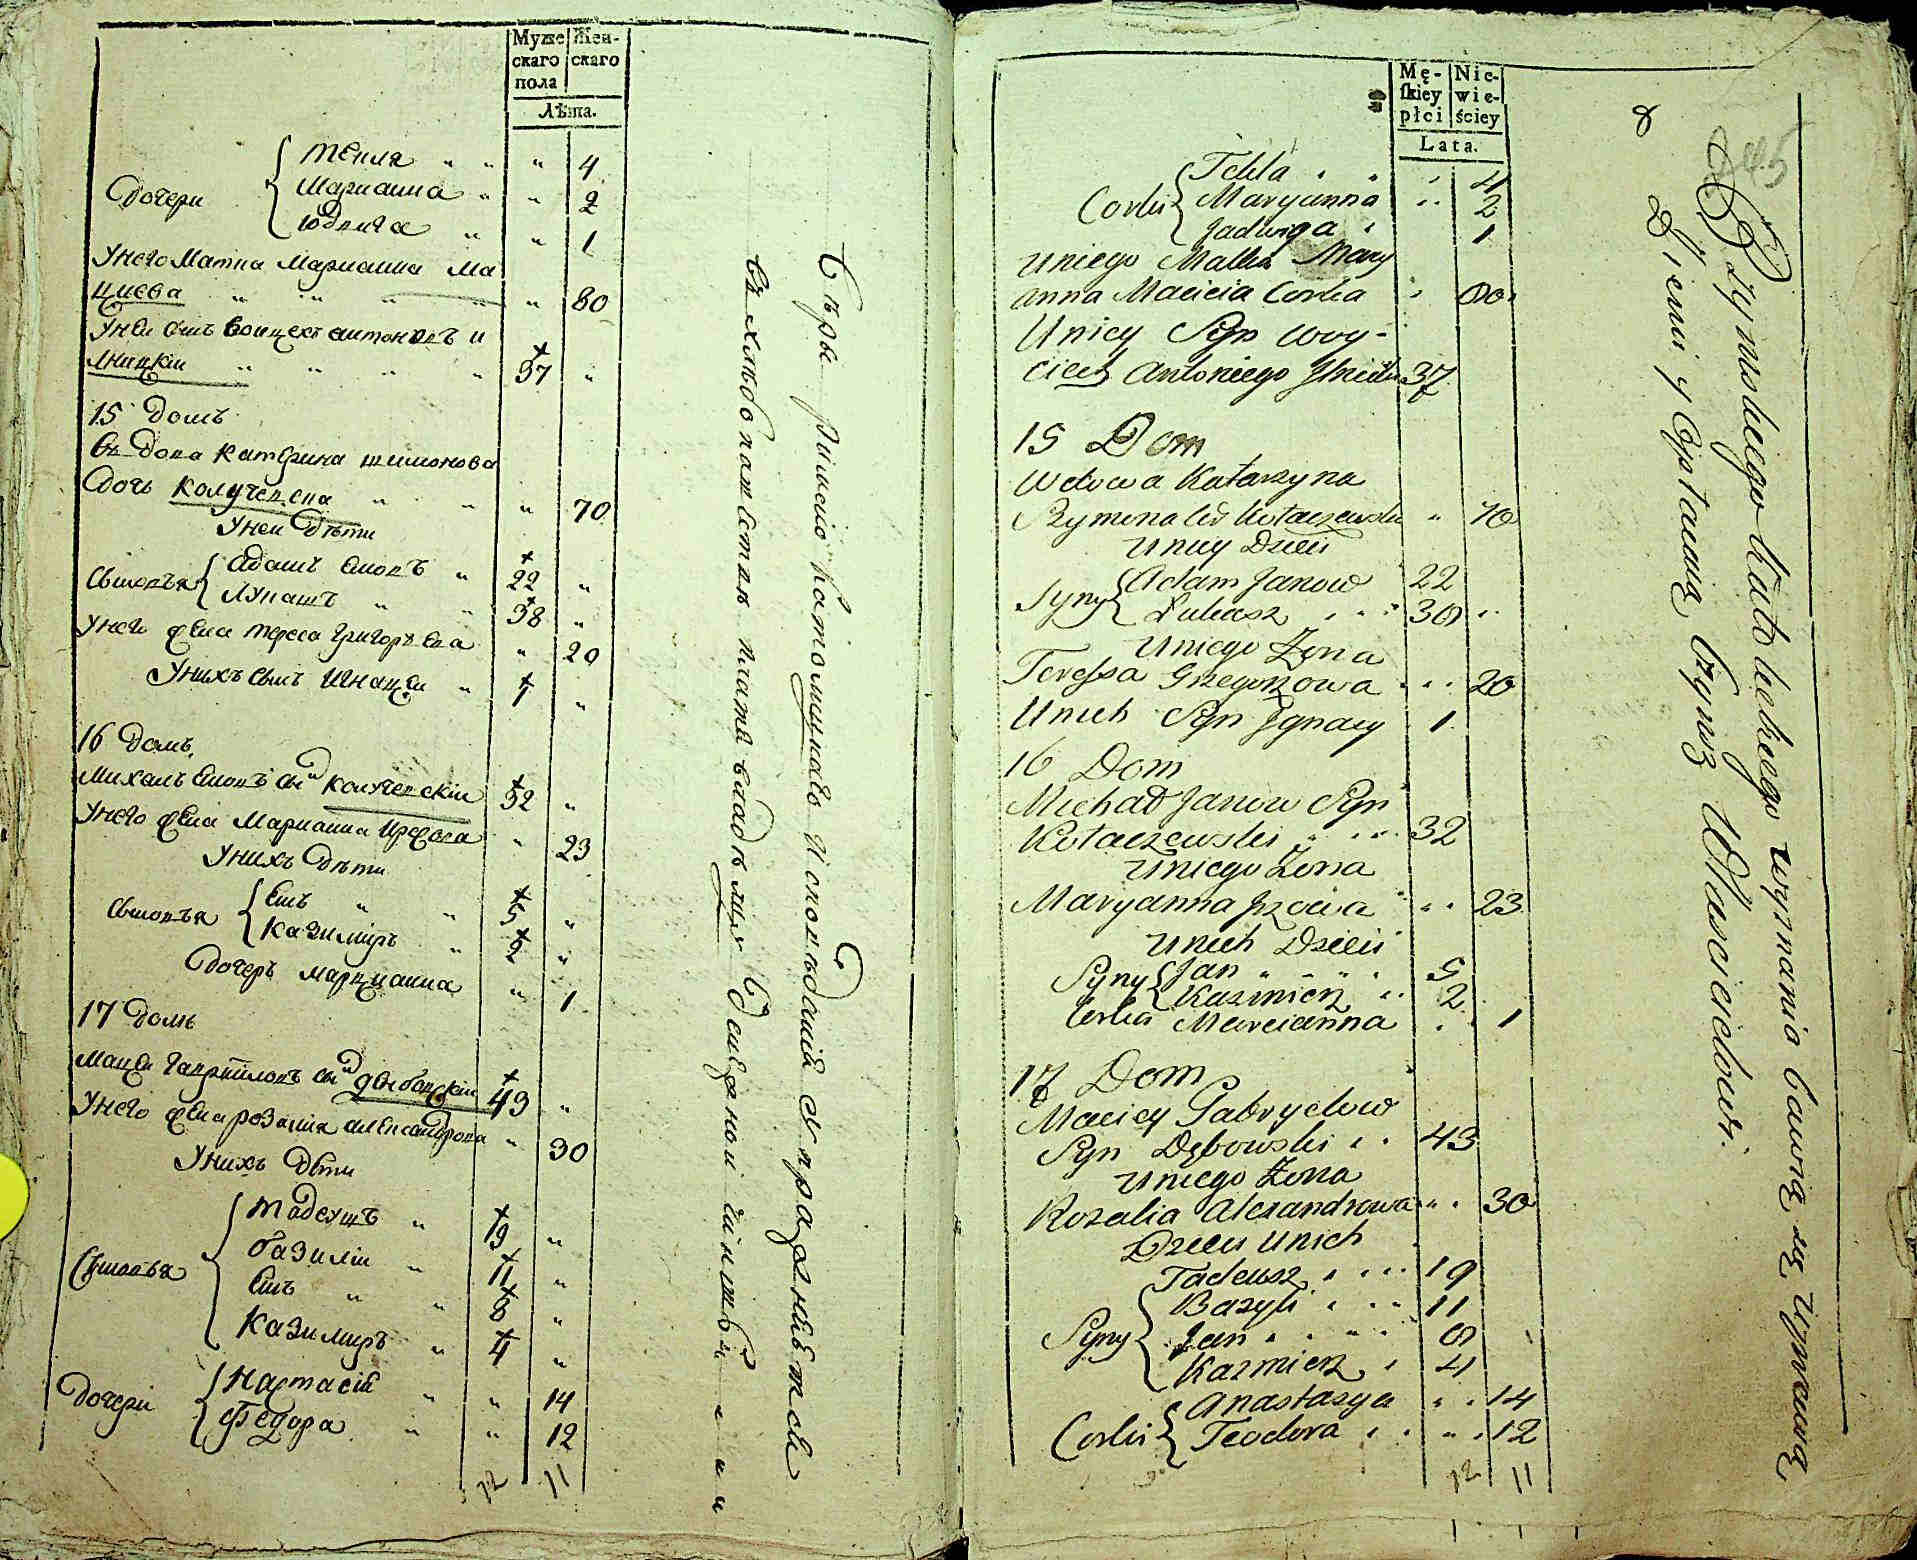 Муже
скаго
пола
Жен-
скаго
Лѣта.
Дочери
Текля " " " 4
Марианна " " 2
Юдвига " " 1
У него Матка Марианна Ма
циева " " " " " 80
У неи сынъ Воицех Антоновъ И
лницкіи " " " " 37 "
15 Домъ
Вдова Катерина шимонова
Дочь Колучевска " " " 70
У неи Дѣти
Сыновья
Адамъ Яновъ " 22 "
Лукашъ " " 38 "
У него жена Тереса Григорьева " 20
У нихъ сынъ Игнацеи " 1 "
16 Домъ
Михалъ Яновъ сынъ Колучевскіи 32 "
У него жена Марианна Юрова " 23
У нихъ Дѣти
Сыновья
Янъ " " 5 "
Казимиръ " 2 "
Дочеръ Марцианна " 1
17 Домъ
Мацеи Гаврыловъ сынъ Дембовскіи 43 "
У него жена Розалия александрова " 30
У нихъ Дѣти
Сыновья
Тадеушъ " 19 "
базилии " 11 "
Янъ " " 8 "
Казимиръ " 4 "
Дочери
Настасия " " 14
Федора " " 12
12 11
Вѣры римско Католицкаго Исповѣданія упражняется
въ хлѣбопашествѣ платя владѣлцу
Mę-
skiey
płci
Nie-
wie-
ściey
Lata.
8
245
Corki
Tekla " " " 4
Maryanna " " 2
Jadwiga " 1
U niego Matka Mary
anna Macieia Corka " 80
U niey Syn Woy-
ciech Antoniego Jlnicki 37
15 Dom
Wdowa Katarzyna
Szymona Co Kołaczewska " 70
U niey Dzieci
Syny
Adam Janow 22
Łukasz " " " 38 "
U niego Żona
Teressa Grzegorzowa " " " 20
U nich Syn Jgnacy 1
16 Dom
Michał Janow Syn
Kołaczewski " " " 32
U niego Żona
Maryanna Jrzowa " " 23
U nich Dzieci
Syny
Jan " " " " 5
Kazmierz " " 2
Corka Marcianna " " 1
17 Dom
Maciey Gabryelow
Syn Dębowski " " 43
U niego Żona
Rozalia Alexandrowa " " 30
Dzieci U nich
Syny
Tadeusz " " " 19
Bazyli " " " 11
Jan " " " " 8 "
Kazmierz " 4
Corki
Anastazya " " 14
Teodora " " " " 12
12 11
Rzymskiego Katolickiego wyznania bawią się Uprawą
Ziemi y Opłacają Czynsz Właścicielowi.